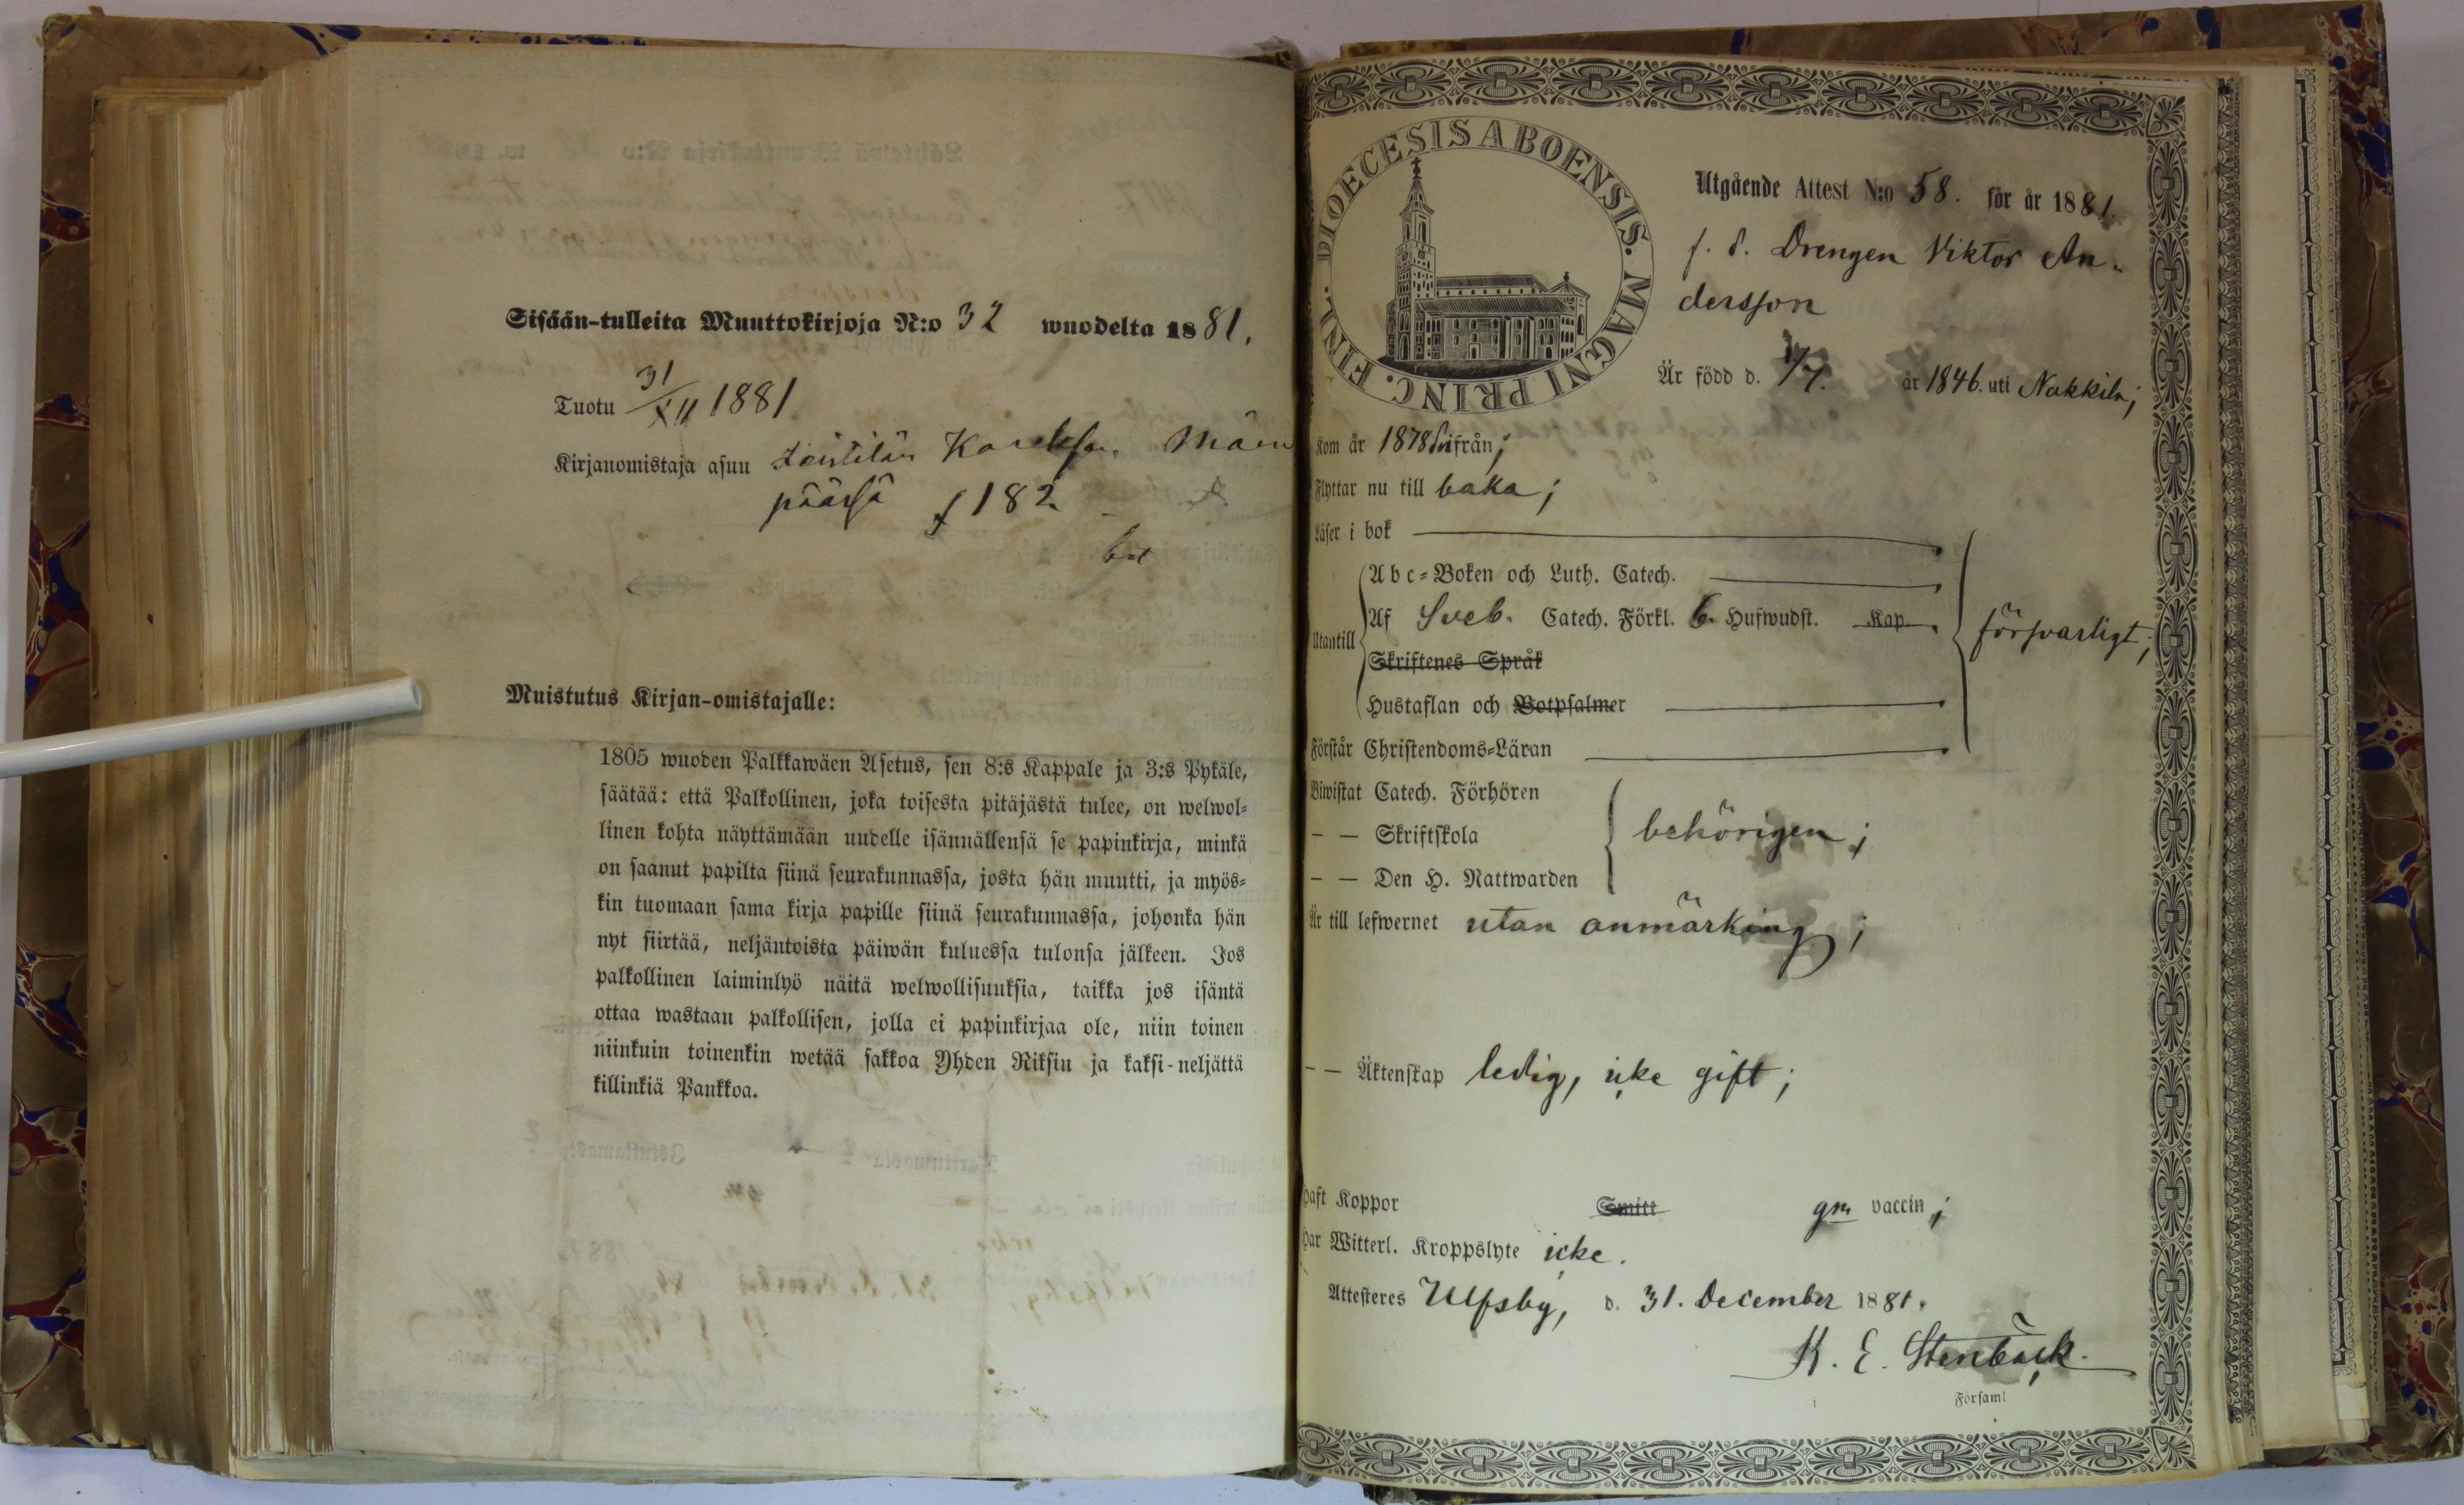 Sisään-tulleita Muuttokirjoja N:o 32 wuodelta 1881.
Tuotu 31/XII 1881
Kirjanomistaja asuu
päässä f 182
Muistutus Kirjan-omistajalle:
1805 wuoden Palkkawäen Asetus, sen 8:s Kappale ja 3:s Pykäle,
säätää: että Palkollinen, joka toisesta pitäjästä tulee, on welwol=
linen kohta näyttämään uudelle isännällensä se papinkirja, minkä
on saanut papilta siinä seurakunnassa, josta hän muutti, ja myös=
kin tuomaan sama kirja papille siinä seurakunnassa, johonka hän
nyt siirtää, neljäntoista päiwän kuluessa tulonsa jälkeen. Jos
palkollinen laiminlyö näitä welwollisuuksia, taikka jos isäntä
ottaa wastaan palkollisen, jolla ei papinkirjaa ole, niin toinen
niinkuin toinenkin wetää sakkoa Yhden Riksin ja kaksi-neljättä
killinkiä Pankkoa.
DIOECESIS ABOENSIS. MAGNI PRINC. FINL.
Utgående Attest N:o 58. för år 1881.
f. d. Drengen Viktor An-
dersson
Är född d. /7. år 1846. uti Nakkila;
Kom år 1878 från;
Flyttar nu till baka;
Läser i bok
Utantill
Abc=Boken och Luth. Catech.
Af Sveb. Catech. Förkl. 6. Hufwudst. Kap.
försvarligt;
Skriftenes Språk
Hustaflan och Botpsalmer
Förstår Christendoms=Läran
Biwistat Catech. Förhören
— — Skriftskola
behörigen;
— — Den H. Nattwarden
Är till lefwernet utan anmärking;
— — Äktenskap ledig, icke gift;
Haft Koppor Smitt gm vaccin;
Har Witterl. Kroppslyte icke.
Attesteres Ulfsby, d. 31. December 1881.
K. E. Stenbäck.
Församl